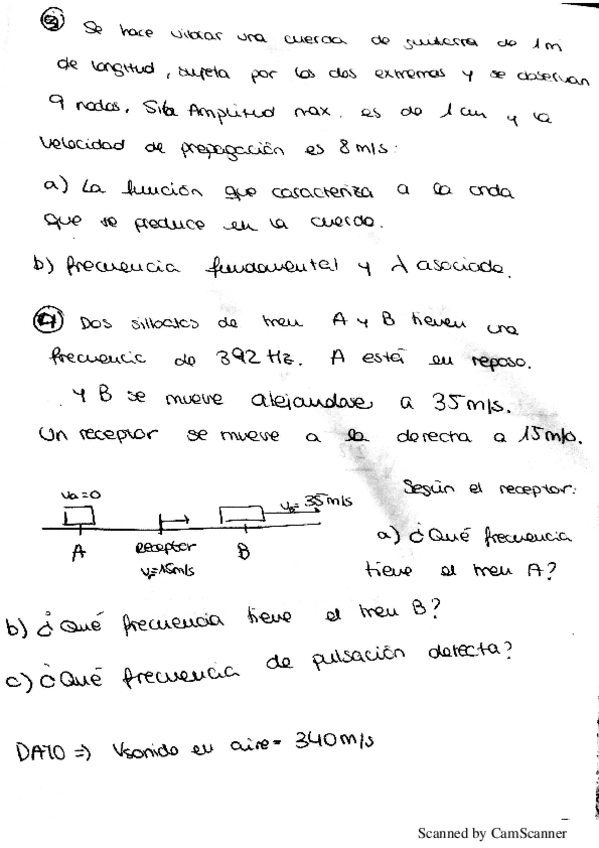 ③ Se hace vibrar una cuerda de guitarra de 1m
de longitud, sujeta por los dos extremos y se observan
9 nodos. Si la Amplitud max. es de 1cm y la
velocidad de propagación es 8m/s:
a) La función que caracteriza a la onda
que se produce en la cuerda.
b) frecuencia fundamental y λ asociada.
④ Dos silbatos de tren A y B tienen una
frecuencia de 392 Hz. A está en reposo.
y B se mueve alejandose a 35m/s.
Un receptor se mueve a la derecta a 15m/s.
Va=0
VB= 35m/s
Según el receptor:
A
receptor
B
Vr=15m/s
a) ¿Qué frecuencia
tiene el tren A?
b) ¿Qué frecuencia tiene el tren B?
c) ¿Qué frecuencia de pulsación detecta?
DATO => Vsonido en aire= 340m/s
Scanned by CamScanner